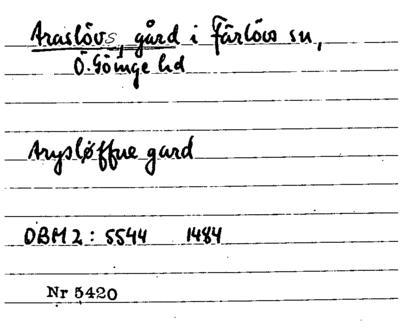 Araslövs, gård i Färlövs sn,
Ö. Göinge hd
Arysløffue gard
DBM 2: 5544 1484
Nr 5420